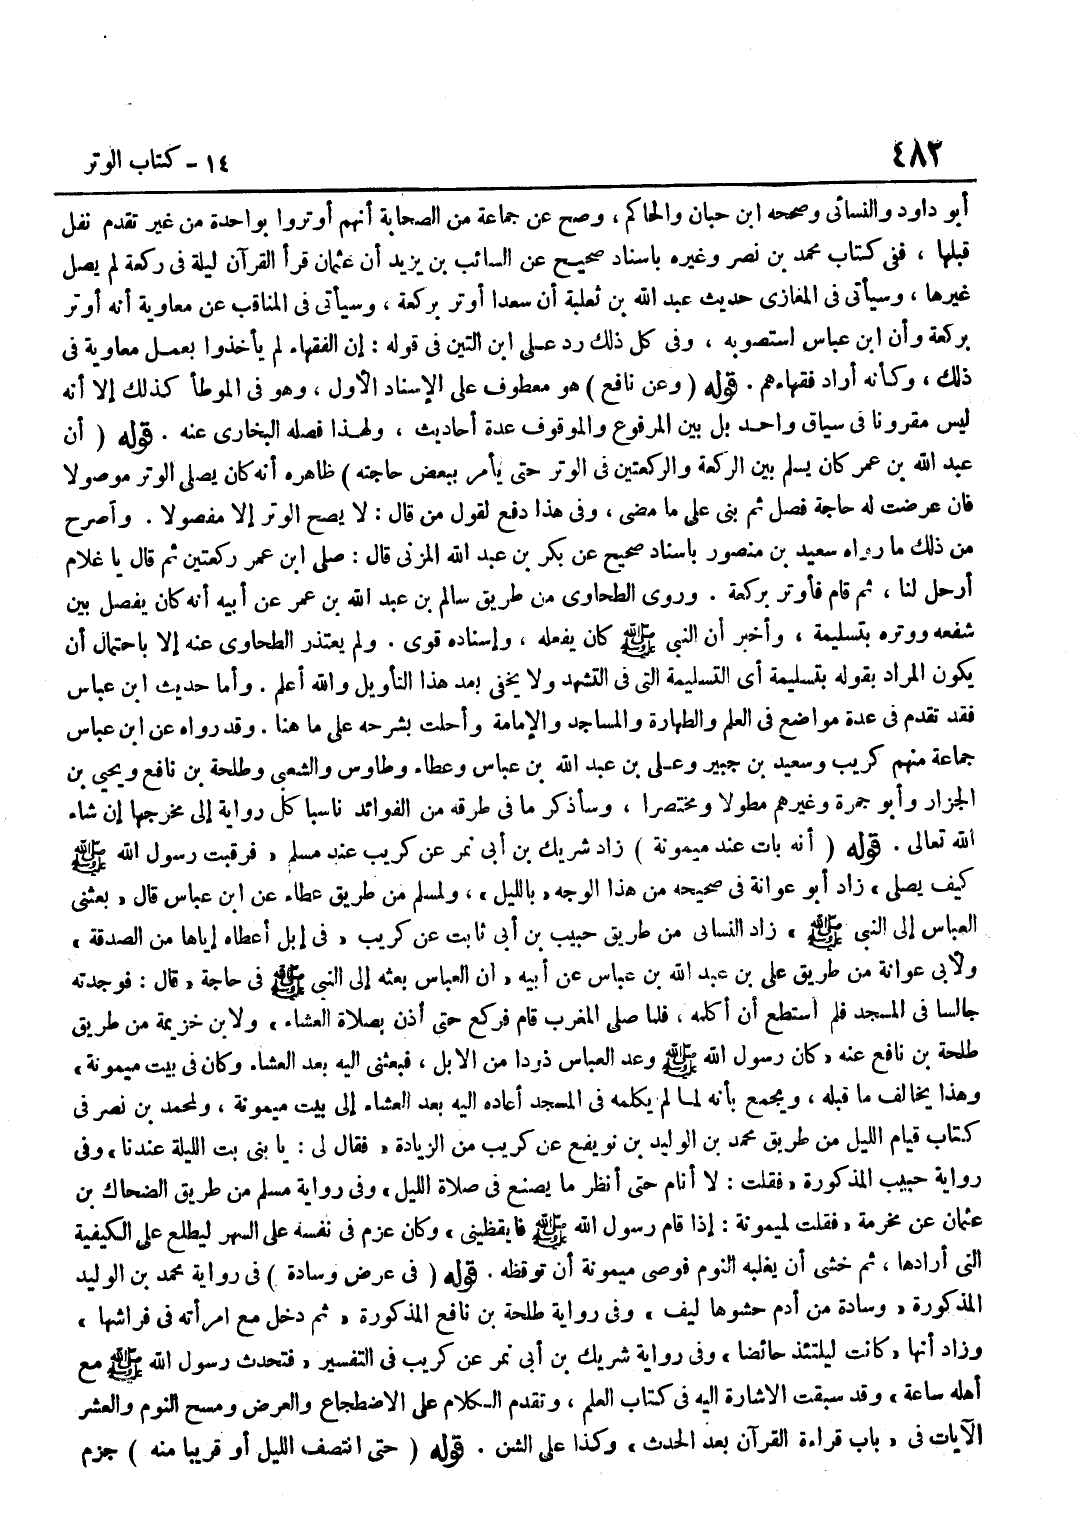 ٤٨٢
١٤ - كتاب الوتر
أبو داود والنسائى وصححه ابن حبان والحاكم ، وصح عن جماعة من الصحابة أنهم أوتروا بواحدة من غير تقدم نفل
قبلها ، ففى كتاب محمد بن نصر وغيره باسناد صحيح عن السائب بن يزيد أن عثمان قرأ القرآن ليلة فى ركعة لم يصل
غيرها ، وسيأتى فى المغازى حديث عبد الله بن ثعلبة أن سعدا أوتر بركعة ، وسيأتى فى المناقب عن معاوية أنه أوتر
بركعة وأن ابن عباس استصوبه ، وفى كل ذلك رد على ابن التين فى قوله : إن الفقهاء لم يأخذوا بعمل معاوية فى
ذلك ، وكأنه أراد فقهاءهم . قوله ( وعن نافع ) هو معطوف على الإسناد الأول ، وهو فى الموطأ كذلك إلا أنه
ليس مقرونا فى سياق واحد بل بين المرفوع والموقوف عدة أحاديث ، ولهذا فصله البخارى عنه . قوله ( أن
عبد الله بن عمر كان يسلم بين الركعة والركعتين فى الوتر حتى يأمر ببعض حاجته ) ظاهره أنه كان يصلى الوتر موصولا
فان عرضت له حاجة فصل ثم بنى على ما مضى ، وفى هذا دفع لقول من قال : لا يصح الوتر إلا مفصولا . وأصرح
من ذلك ما رواه سعيد بن منصور باسناد صحيح عن بكر بن عبد الله المزنى قال : صلى ابن عمر ركعتين ثم قال يا غلام
أرحل لنا ، ثم قام فأوتر بركعة . وروى الطحاوى من طريق سالم بن عبد الله بن عمر عن أبيه أنه كان يفصل بين
شفعه ووتره بتسليمة ، وأخبر أن النبي ﷺ كان يفعله ، وإسناده قوى . ولم يعتذر الطحاوى عنه إلا باحتمال أن
يكون المراد بقوله بتسليمة أى التسليمة التى فى التشهد ولا يخفى بعد هذا التأويل والله أعلم . وأما حديث ابن عباس
فقد تقدم فى عدة مواضع فى العلم والطهارة والمساجد والإمامة وأحلت بشرحه على ما هنا . وقد رواه عن ابن عباس
جماعة منهم كريب وسعيد بن جبير وعلى بن عبد الله بن عباس وعطاء وطاوس والشعبى وطلحة بن نافع ويحيى بن
الجزار وأبو جمرة وغيرهم مطولا ومختصرا ، وسأذكر ما فى طرقه من الفوائد ناسبا كل رواية إلى مخرجها إن شاء
الله تعالى . قوله ( أنه بات عند ميمونة ) زاد شريك بن أبى نمر عن كريب عند مسلم « فرقبت رسول الله ﷺ
كيف يصلى » زاد أبو عوانة فى صحيحه من هذا الوجه « بالليل » ، ولمسلم من طريق عطاء عن ابن عباس قال « بعثنى
العباس إلى النبي ﷺ » زاد النسائى من طريق حبيب بن أبى ثابت عن كريب « فى إبل أعطاه إياها من الصدقة »
ولأبى عوانة من طريق على بن عبد الله بن عباس عن أبيه « ان العباس بعثه إلى النبي ﷺ فى حاجة « قال : فوجدته
جالسا فى المسجد فلم استطع أن أكلمه ، فلما صلى المغرب قام فركع حتى أذن بصلاة العشاء » ولابن خزيمة من طريق
طلحة بن نافع عنه « كان رسول الله ﷺ وعد العباس ذودا من الابل ، فبعثنى اليه بعد العشاء وكان فى بيت ميمونة »
وهذا يخالف ما قبله ، ويجمع بأنه لما لم يكلمه فى المسجد أعاده اليه بعد العشاء إلى بيت ميمونة ، ولمحمد بن نصر فى
كتاب قيام الليل من طريق محمد بن الوليد بن نويفع عن كريب من الزيادة « فقال لى : يا بنى بت الليلة عندنا » وفى
رواية حبيب المذكورة « فقلت : لا أنام حتى أنظر ما يصنع فى صلاة الليل » وفى رواية مسلم من طريق الضحاك بن
عثمان عن مخرمة « فقلت لميمونة : إذا قام رسول الله ﷺ فايقظينى » وكان عزم فى نفسه على السهر ليطلع على الكيفية
التى أرادها ، ثم خشى أن يغلبه النوم فوصى ميمونة أن توقظه . قوله ( فى عرض وسادة ) فى رواية محمد بن الوليد
المذكورة « وسادة من أدم حشوها ليف » وفى رواية طلحة بن نافع المذكورة « ثم دخل مع امرأته فى فراشها »
وزاد أنها « كانت ليلتئذ حائضا » وفى رواية شريك بن أبى نمر عن كريب فى التفسير « فتحدث رسول الله ﷺ مع
أهله ساعة » وقد سبقت الاشارة اليه فى كتاب العلم ، وتقدم الكلام على الاضطجاع والعرض ومسح النوم والعشر
الآيات فى « باب قراءة القرآن بعد الحدث » وكذا على الشن . قوله ( حتى انتصف الليل أو قريبا منه ) جزم